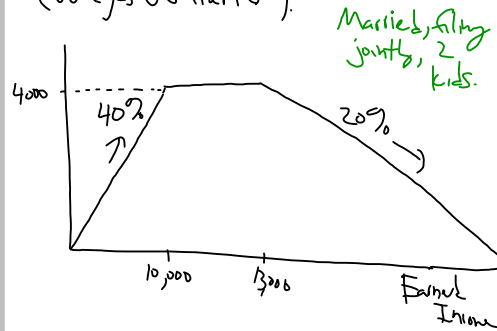 Married, filing
jointly, 2
kids.
4000
40%
20%
10,000
13,000
Earned
Income